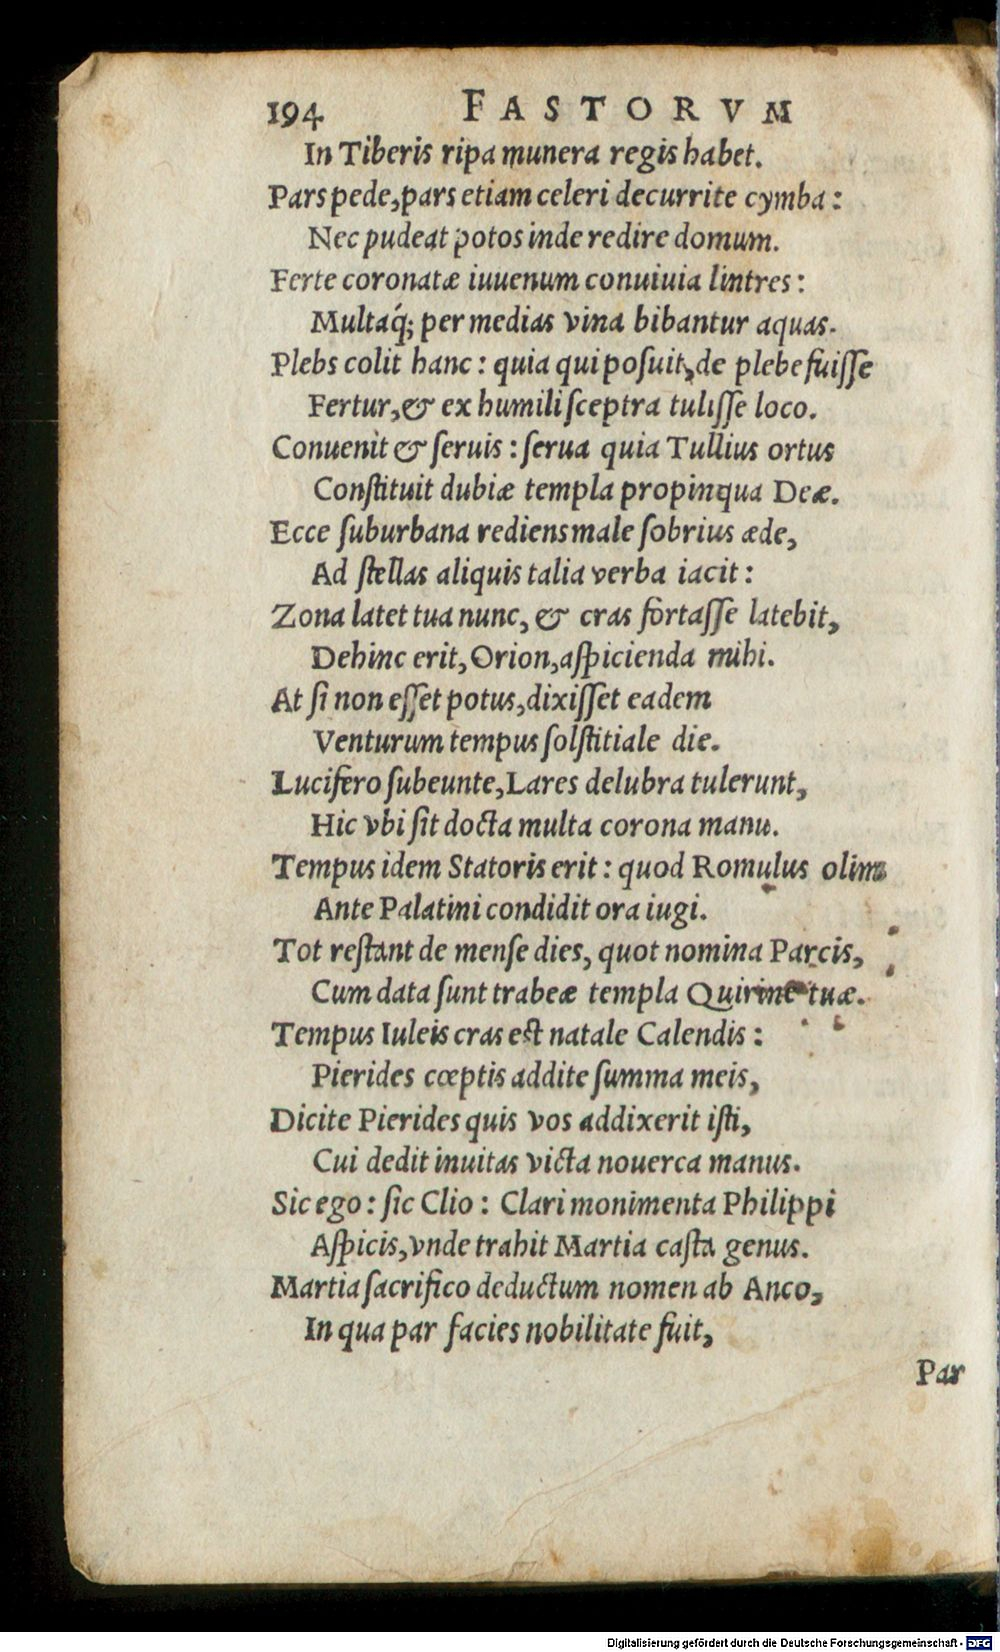 194 FASTORVM
In Tiberis ripa munera regis habet.
Pars pede, pars etiam celeri decurrite cymba:
Nec pudeat potos inde redire domum.
Ferte coronatæ iuuenum conuiuia lintres:
Multaq́; per medias vina bibantur aquas.
Plebs colit hanc: quia qui poſuit, de plebe fuiſſe
Fertur, & ex humili ſceptra tuliſſe loco.
Conuenit & ſeruis: ſerua quia Tullius ortus
Conſtituit dubiæ templa propinqua Deæ.
Ecce ſuburbana rediens male ſobrius æde,
Ad ſtellas aliquis talia verba iacit:
Zona latet tua nunc, & cras fortaſſe latebit,
Dehinc erit, Orion, aſpicienda mihi.
At ſi non eſſet potus, dixiſſet eadem
Venturum tempus ſolſtitiale die.
Lucifero ſubeunte, Lares delubra tulerunt,
Hic vbi fit docta multa corona manu.
Tempus idem Statoris erit: quod Romulus olim
Ante Palatini condidit ora iugi.
Tot reſtant de menſe dies, quot nomina Parcis,
Cum data ſunt trabeæ templa Quirine tuæ.
Tempus Iuleis cras est natale Calendis:
Pierides cœptis addite ſumma meis,
Dicite Pierides quis vos addixerit iſti,
Cui dedit inuitas victa nouerca manus.
Sic ego: ſic Clio: Clari monimenta Philippi
Aſpicis, vnde trahit Martia caſta genus.
Martia ſacrifico deductum nomen ab Anco,
In qua par facies nobilitate fuit,
Par
Digitalisierung gefördert durch die Deutsche Forschungsgemeinschaft - DFG